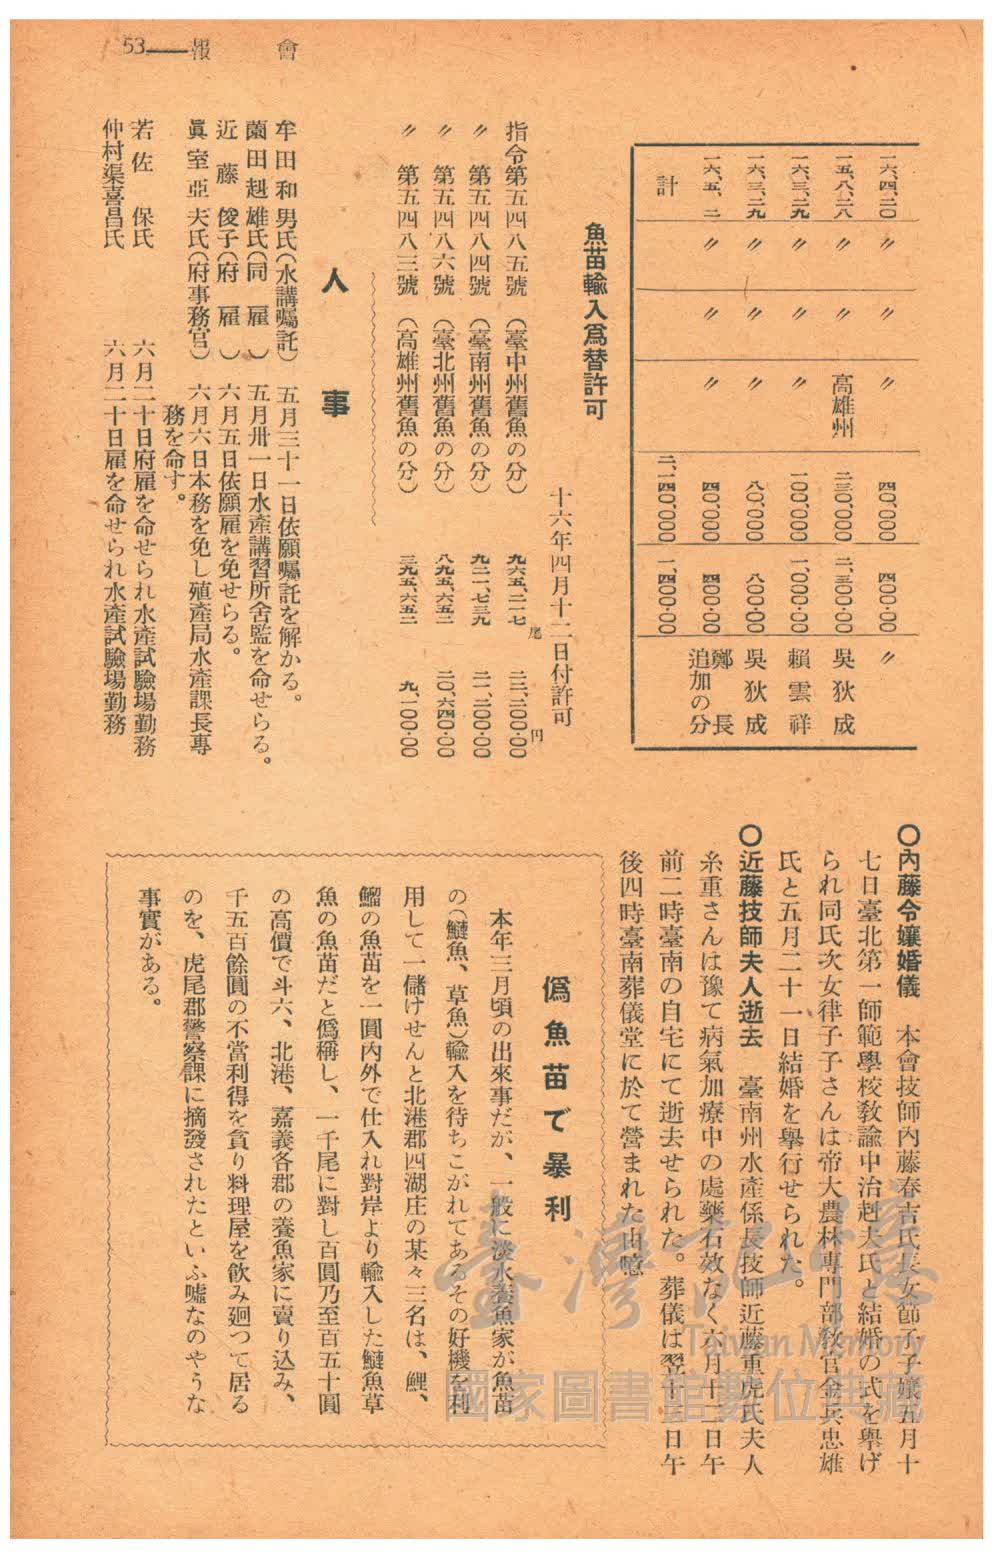 會報――53
一六、四、二〇 〃 〃 〃 四〇、〇〇〇 四〇〇・〇〇 〃
一五、八、二八 〃 〃 高雄州 二三〇、〇〇〇 二、三〇〇・〇〇 吳狄成
一六、三、二九 〃 〃 〃 一〇〇、〇〇〇 一、〇〇〇・〇〇 賴雲祥
一六、三、二九 〃 〃 〃 八〇、〇〇〇 八〇〇・〇〇 吳狄成
一六、五、二 〃 〃 〃 四〇、〇〇〇 四〇〇・〇〇 鄭長
追加の分
計 二、一四〇、〇〇〇 一、四〇〇・〇〇
魚苗輸入爲替許可
十六年四月十二日付許可
指令第五四八五號 (臺中州舊魚の分) 九六五、二一七尾 二二、二〇〇・〇〇円
〃 第五四八四號 (臺南州舊魚の分) 九二一、七三九 二一、二〇〇・〇〇
〃 第五四八六號 (臺北州舊魚の分) 八九五、六五二 二〇、六四〇・〇〇
〃 第五四八三號 (高雄州舊魚の分) 三九五、六五二 九、一〇〇・〇〇
人事
牟田和男氏(水講囑託) 五月三十一日依願囑託を解かる。
薗田赳雄氏(同雇) 五月卅一日水產講習所舍監を命せらる。
近藤俊子(府雇) 六月五日依願雇を免せらる。
眞室亞夫氏(府事務官) 六月六日本務を免し殖產局水產課長專
務を命す。
若佐保氏 六月二十日府雇を命せられ水產試驗場勤務
仲村渠喜昌氏 六月二十日雇を命せられ水產試驗場勤務
〇內藤令孃婚儀 本會技師內藤春吉氏長女節子子孃五月十
七日臺北第一師範學校敎諭中治赳夫氏と結婚の式を擧げ
られ同氏次女律子子さんは帝大農林專門部敎官金兵忠雄
氏と五月二十一日結婚を擧行せられた。
〇近藤技師夫人逝去 臺南州水產係長技師近藤重虎氏夫人
糸重さんは豫て病氣加療中の處藥石效なく六月十二日午
前二時臺南の自宅にて逝去せられた。葬儀は翌十三日午
後四時臺南葬儀堂に於て營まれた由噫
僞魚苗で暴利
本年三月頃の出來事だが、一般に淡水養魚家が魚苗
の(鰱魚、草魚)輸入を待ちこがれてあるその好機を利
用して一儲けせんと北港郡四湖庄の某々三名は、鯉、
鰡の魚苗を一圓內外で仕入れ對岸より輸入した鰱魚草
魚の魚苗だと僞稱し、一千尾に對し百圓乃至百五十圓
の高價で斗六、北港、嘉義各郡の養魚家に賣り込み、
千五百餘圓の不當利得を貪り料理屋を飮み廻つて居る
のを、虎尾郡警察課に摘發されたといふ噓なのやうな
事實がある。
臺灣記憶
Taiwan Memory
國家圖書館數位典藏